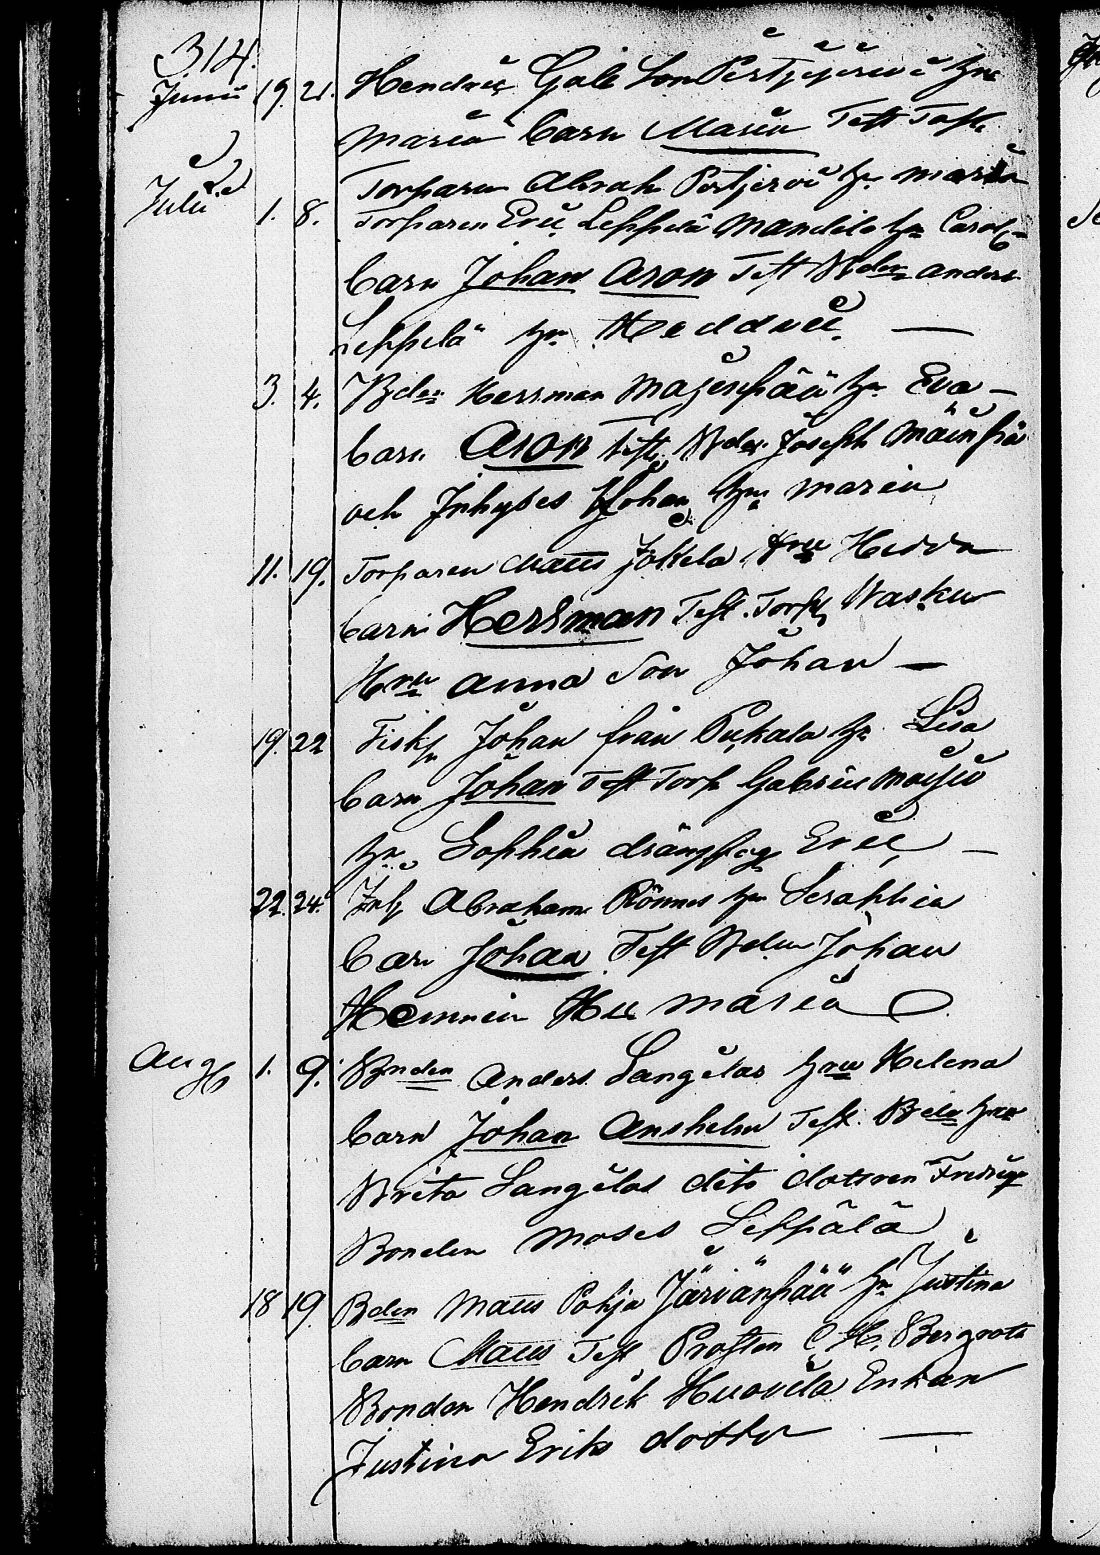 314.
Junii 19. 21. Hendric Gab. Son Pertjerwi hu
Maria barn Maria Test Torp.
Torparen Abrah Pertjerwi hu Maria
Julii 1. 8. Torparen Eric Leppelä Mandila hu Carol.
barn Johan Aron Test Bden Anders
Leppelä hu Heddvic —
3. 4. Bden Herrman Majenpää hu Eva —
barn Aron Test Bden Joseph Mäenpää
och Inhyses Johan hu Maria
11. 19. Torparen Matts Jokela Hru Hedda
barn Herrman Test. Torp Wasku
Hru Anna Son Johan —
19. 22 Fisk Johan från Pukala hu Lisa
barn Johan Test Torp Gabriel
hu Sophia Eric —
22. 24. Inh Abraham Rönnus hu Seraphia
barn Johan Test Bden Johan
Hemmin Hu Maria
Aug 1. 9. Bnden Anders Sangelas hru Helena
barn Johan Anshelm Test. Bdes hru
Brita Sangelas dito dottren Fredrique
Bonden Moses Leppälä
18 19. Bden Matts Pohja Järvänpää hu Justina
barn Matts Test Prosten C. H. Bergroth
Bonden Hendrik Huovila Enkan
Justina Eriks dotter —